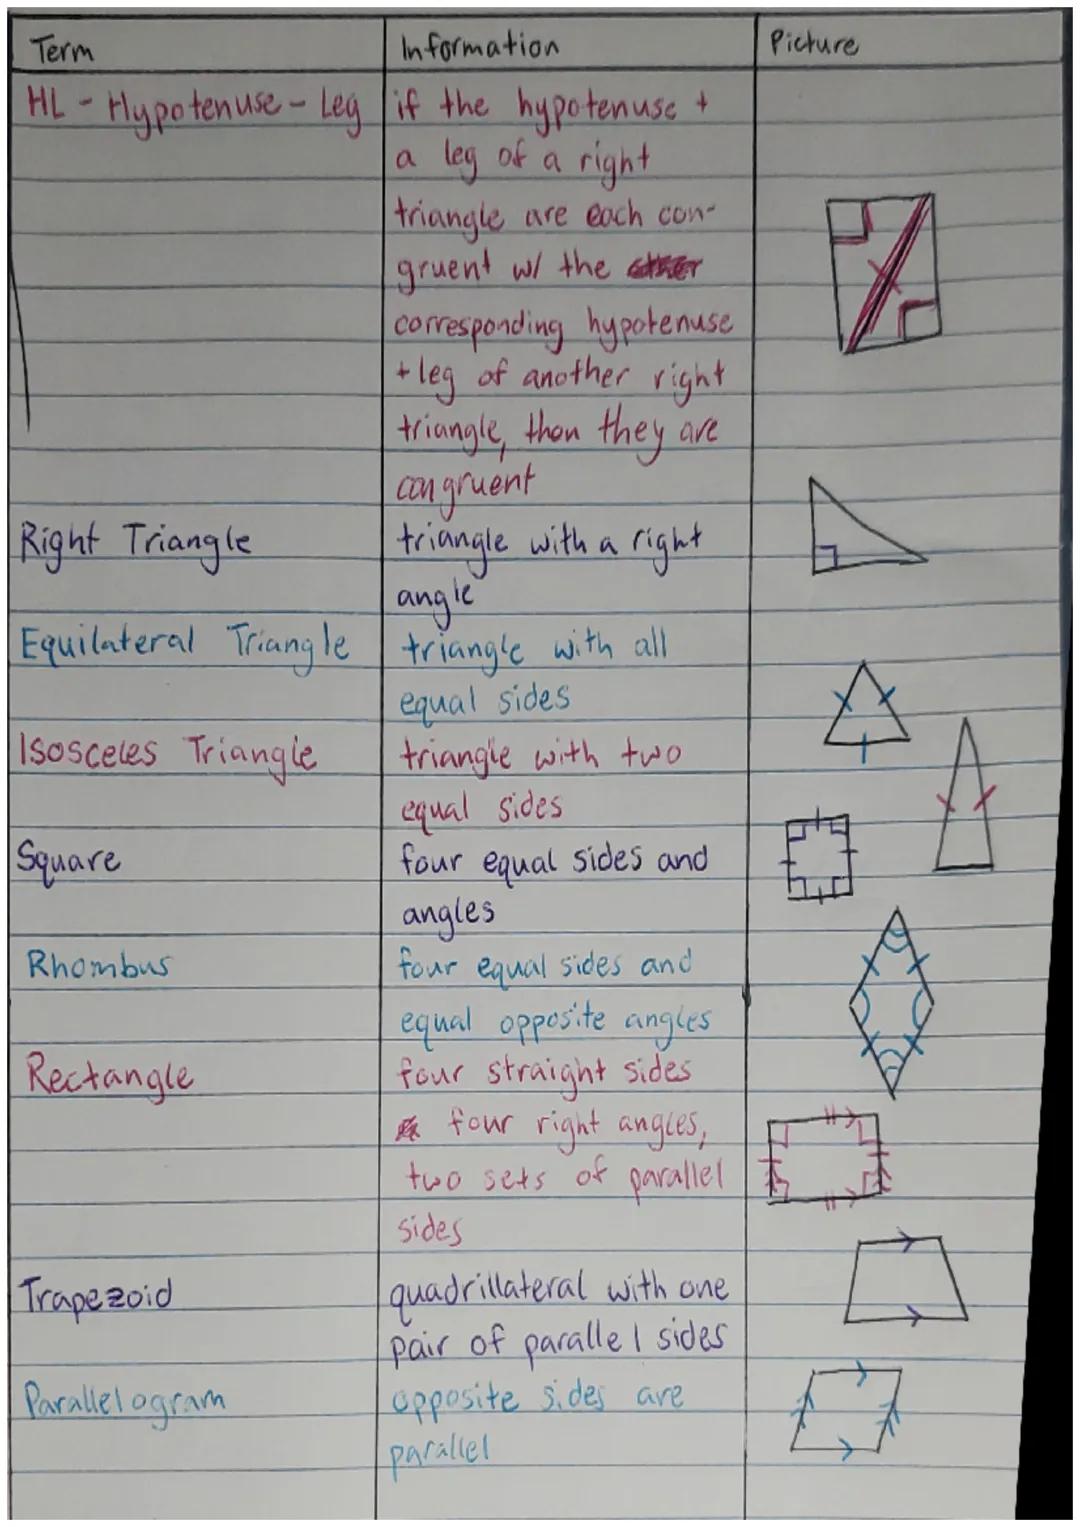 Term Information Picture
HL - Hypotenuse - Leg if the hypotenuse +
a leg of a right
triangle are each con-
gruent w/ the
corresponding hypotenuse
+ leg of another right
triangle, then they are
congruent
Right Triangle triangle with a right
angle
Equilateral Triangle triangle with all
equal sides
Isosceles Triangle triangle with two
equal sides
Square four equal sides and
angles
Rhombus four equal sides and
equal opposite angles
Rectangle four straight sides
four right angles,
two sets of parallel
sides
Trapezoid quadrillateral with one
pair of parallel sides
Parallelogram opposite sides are
parallel